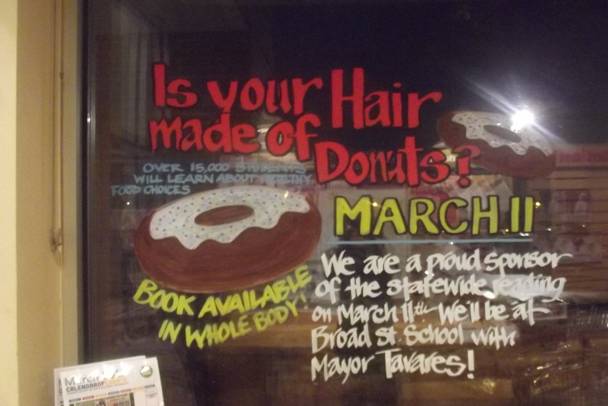 Is your Hair
made of
Donuts?
OVER 15,000 STUDENTS
WILL LEARN ABOUT HEALTHY
FOOD CHOICES
MARCH 11
BOOK AVAILABLE
IN WHOLE BODY!
We are a proud sponsor
of the statewide reading
on March 11th We'll be at
Broad St. School with
Mayor Tavares!
March
CALENDAR